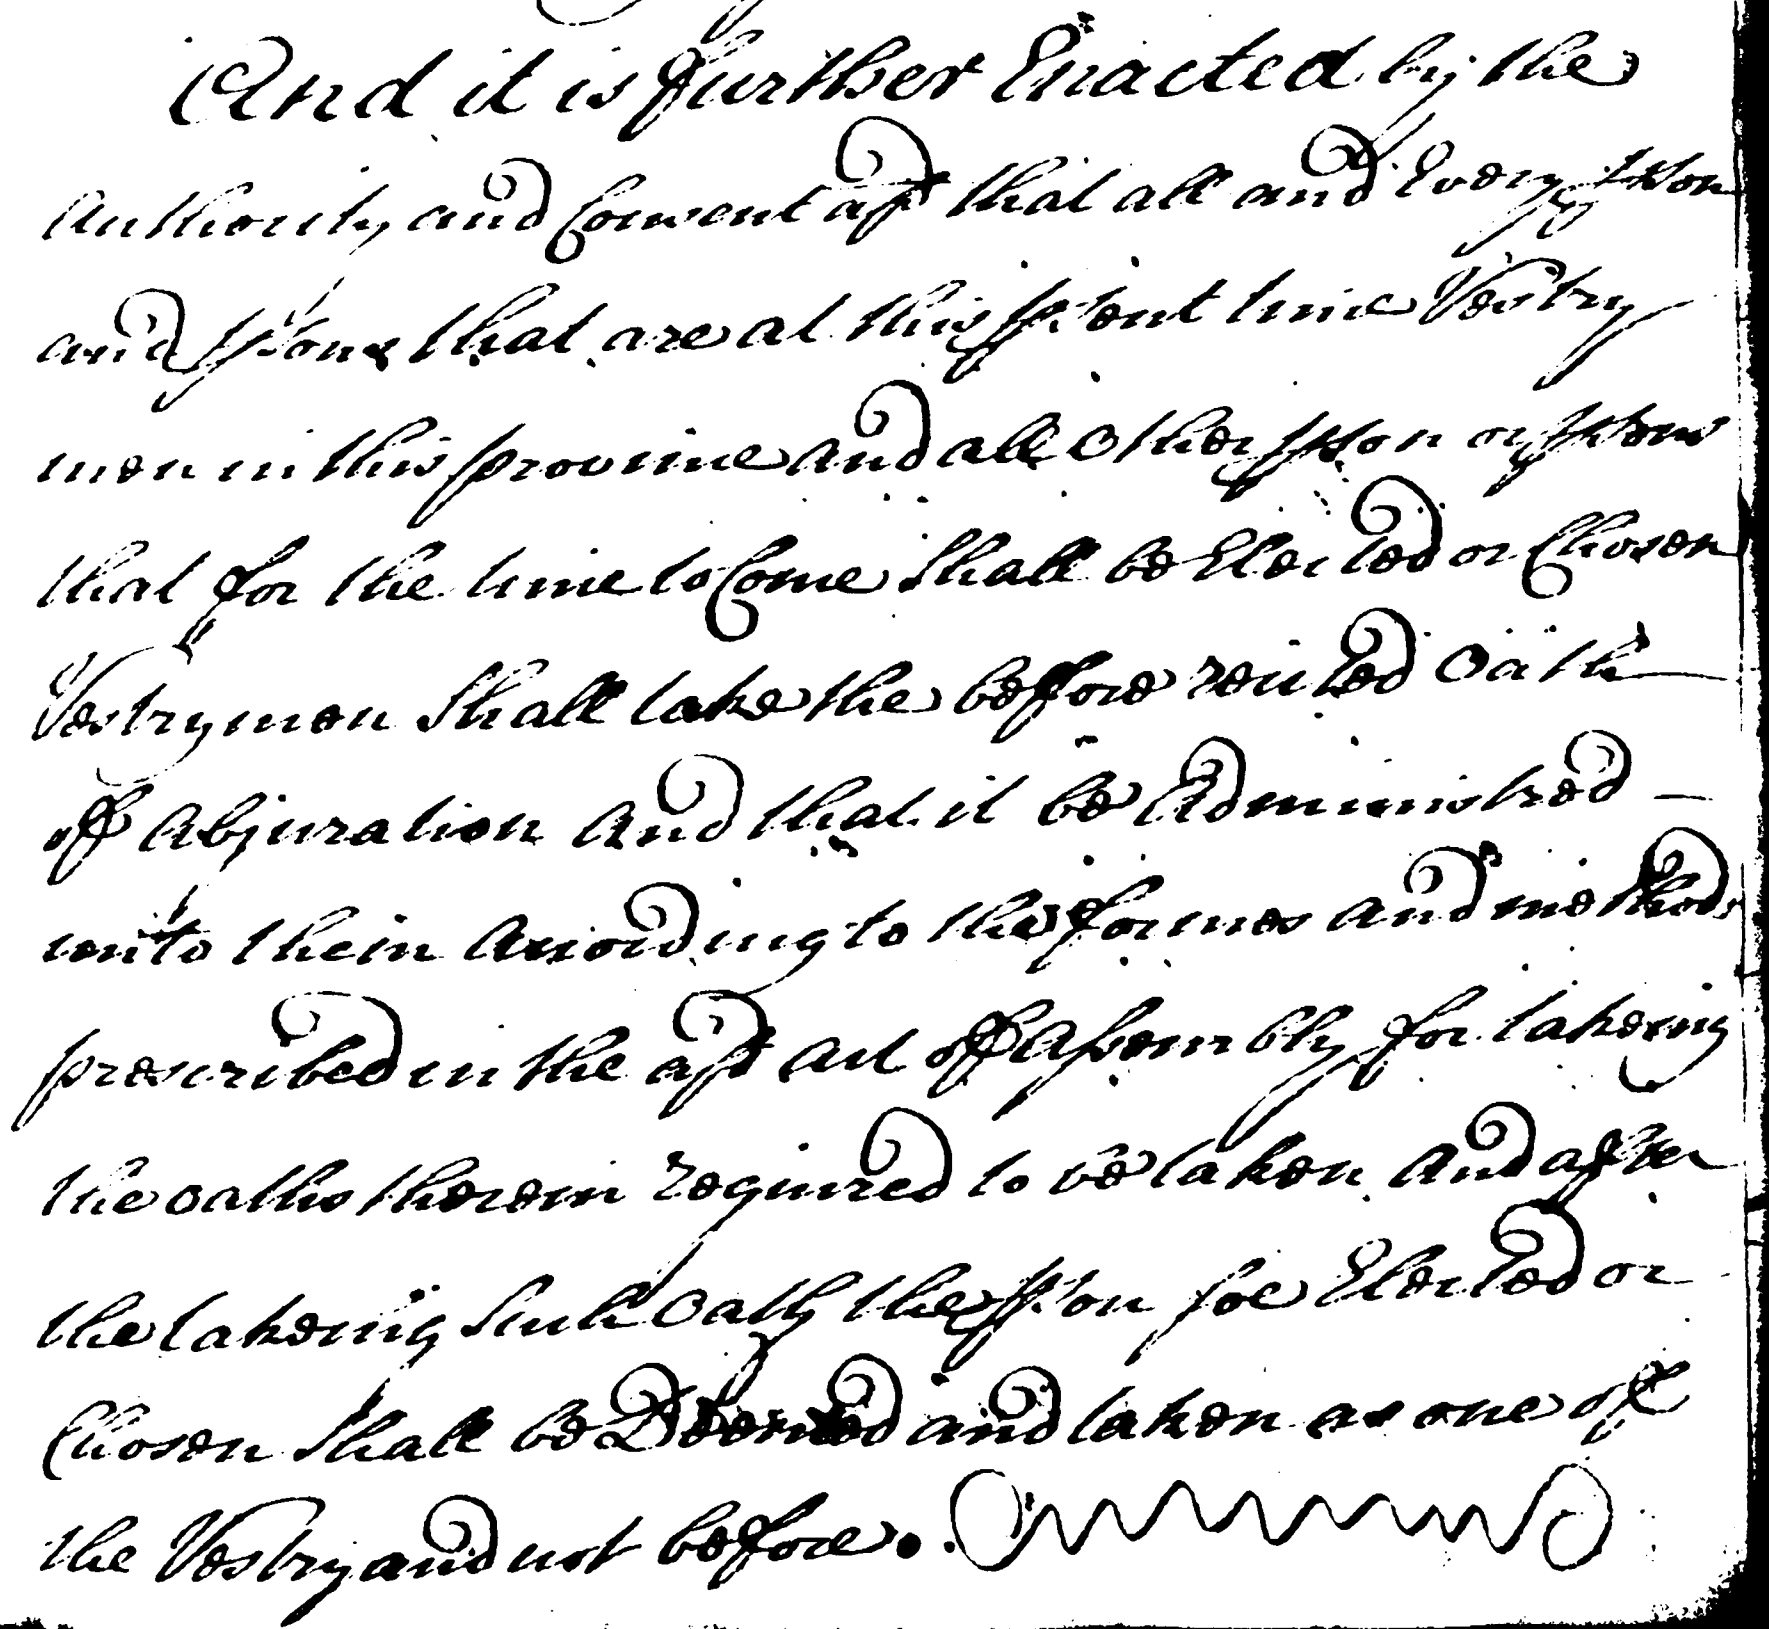 And it is further Enacted by the
Authority and Consent afd that all and Every pson
and psons that are at this psent time Vestry
men in this province and all other pson or psons
that for the time to Come Shall be Elected or Chosen
Vestrymen Shall take the before recited Oath
of Abjuration And that it be Administred
unto them According to the formes and methods
prescribed in the afd Act of Assembly for takeing
the oaths therein required to be taken And after
the takeing Such Oath the pson soe Elected or
Chosen Shall be Deemed and taken as one of
the Vestry and not before.